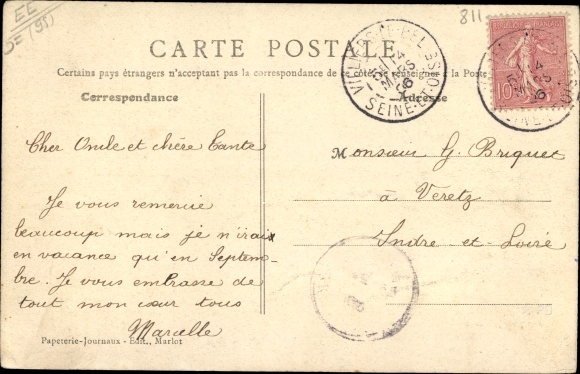 EE
811
CARTE POSTALE
Certains pays étrangers n'acceptant pas la correspondance de ce côté, se renseigner à la Poste
Correspondance
Adresse
VILLIERS-LE-BEL
SEINE-ET-OISE
MARS
10
Cher Oncle et chère Tante
Je vous remercie
beaucoup mais je n'irais
en vacance qu'en Septem-
bre. Je vous embrasse de
tout mon cœur tous
Marcelle
Monsieur G. Briquet
à Veretz
Indre-et-Loire
Papeterie-Journaux - Edit., Marlot